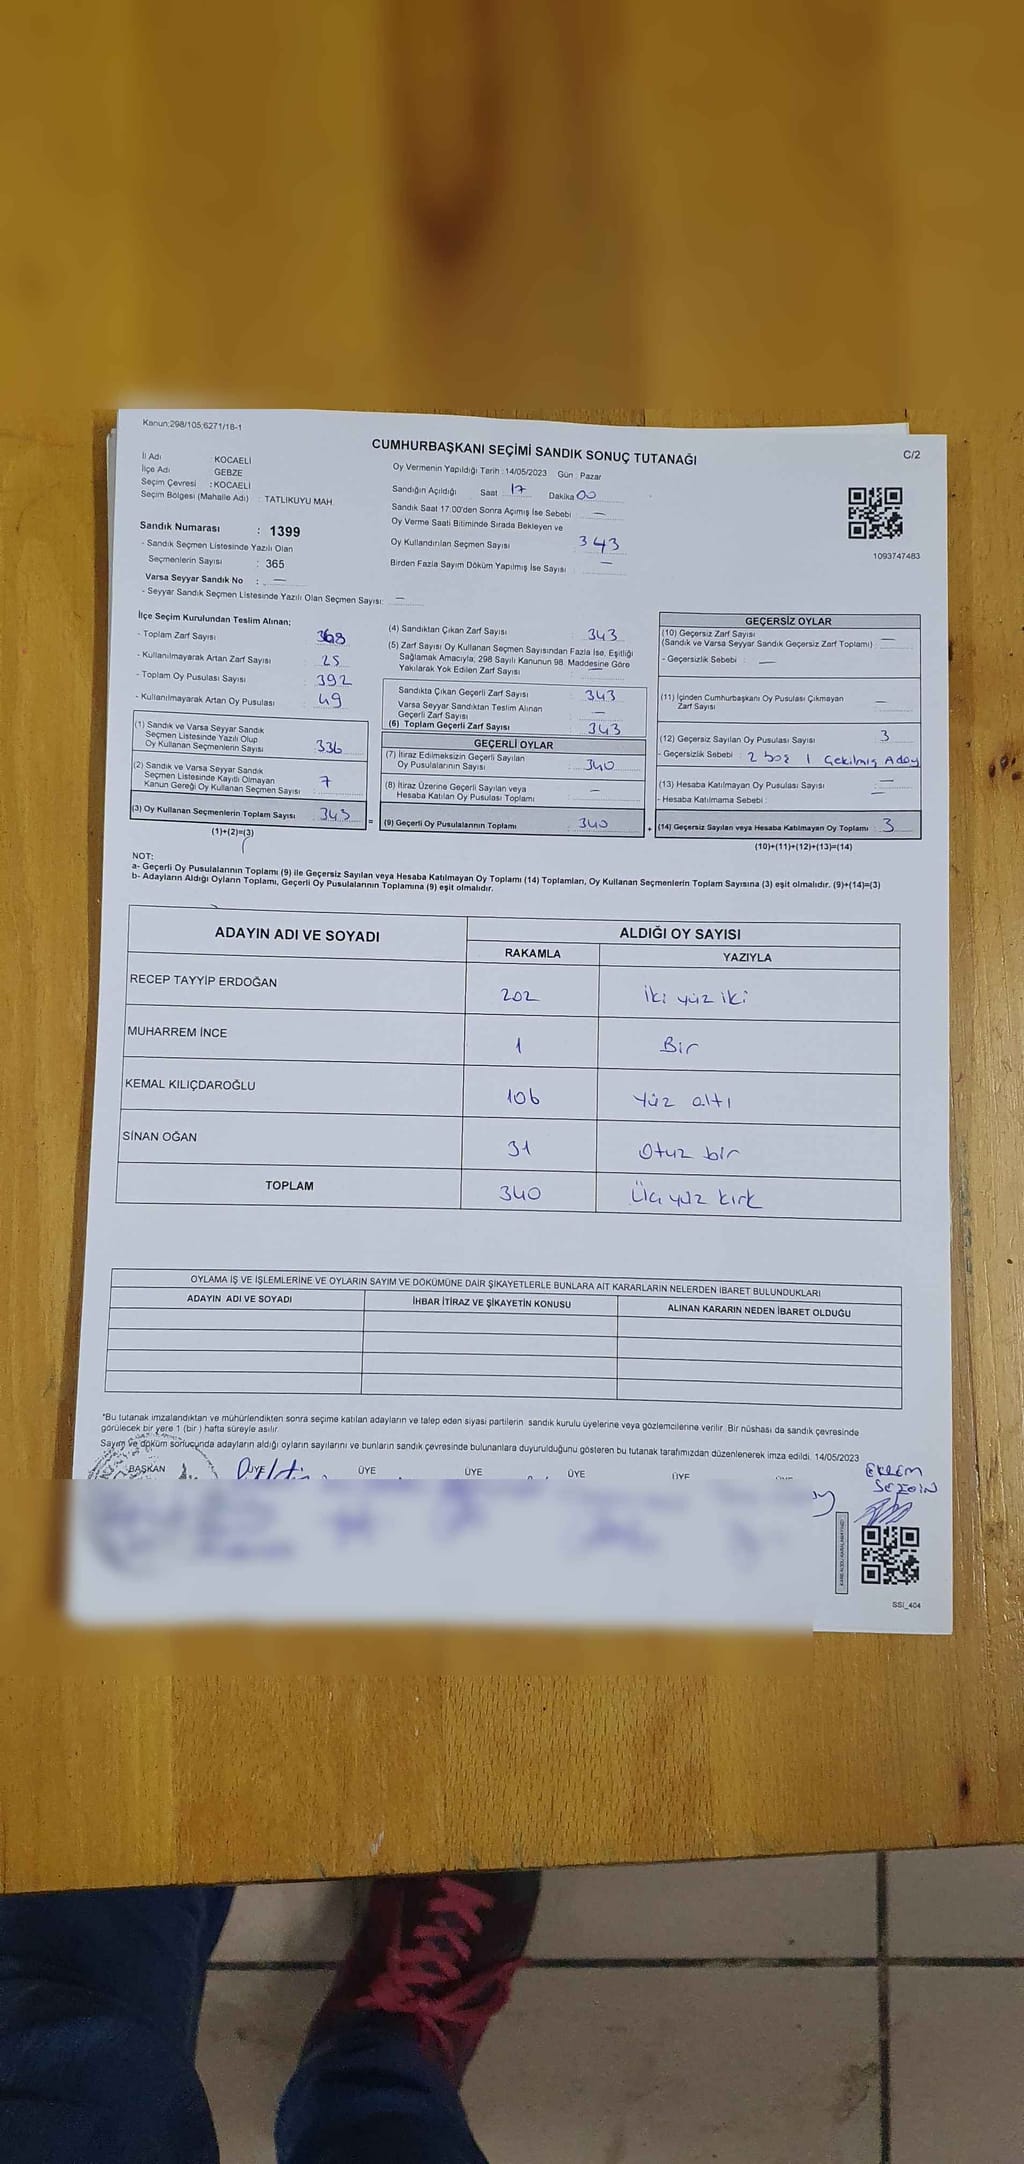 Kanun;298/105;6271/18-1
CUMHURBAŞKANI SEÇİMİ SANDIK SONUÇ TUTANAĞI
C/2
İl Adı KOCAELİ
İlçe Adı GEBZE
Seçim Çevresi : KOCAELİ
Seçim Bölgesi (Mahalle Adı) : TATLIKUYU MAH.
Oy Vermenin Yapıldığı Tarih : 14/05/2023 Gün : Pazar
Sandığın Açıldığı Saat 17 Dakika 00
Sandık Saat 17.00'den Sonra Açımış İse Sebebi : —
Oy Verme Saati Bitiminde Sırada Bekleyen ve
Oy Kullandırılan Seçmen Sayısı : 343
Birden Fazla Sayım Döküm Yapılmış İse Sayısı : —
1093747483
Sandık Numarası : 1399
- Sandık Seçmen Listesinde Yazılı Olan
Seçmenlerin Sayısı : 365
Varsa Seyyar Sandık No : —
- Seyyar Sandık Seçmen Listesinde Yazılı Olan Seçmen Sayısı: —
İlçe Seçim Kurulundan Teslim Alınan;
- Toplam Zarf Sayısı : 368
- Kullanılmayarak Artan Zarf Sayısı : 25
- Toplam Oy Pusulası Sayısı : 392
- Kullanılmayarak Artan Oy Pusulası : 49
(1) Sandık ve Varsa Seyyar Sandık
Seçmen Listesinde Yazılı Olup
Oy Kullanan Seçmenlerin Sayısı : 336
(2) Sandık ve Varsa Seyyar Sandık
Seçmen Listesinde Kayıtlı Olmayan
Kanun Gereği Oy Kullanan Seçmen Sayısı : 7
(3) Oy Kullanan Seçmenlerin Toplam Sayısı : 343
(1)+(2)=(3)
(4) Sandıktan Çıkan Zarf Sayısı : 343
(5) Zarf Sayısı Oy Kullanan Seçmen Sayısından Fazla İse, Eşitliği
Sağlamak Amacıyla; 298 Sayılı Kanunun 98. Maddesine Göre
Yakılarak Yok Edilen Zarf Sayısı : —
Sandıkta Çıkan Geçerli Zarf Sayısı : 343
Varsa Seyyar Sandıktan Teslim Alınan
Geçerli Zarf Sayısı : —
(6) Toplam Geçerli Zarf Sayısı : 343
GEÇERLİ OYLAR
(7) İtiraz Edilmeksizin Geçerli Sayılan
Oy Pusulalarının Sayısı : 340
(8) İtiraz Üzerine Geçerli Sayılan veya
Hesaba Katılan Oy Pusulası Toplamı : —
(9) Geçerli Oy Pusulalarının Toplamı : 340
GEÇERSİZ OYLAR
(10) Geçersiz Zarf Sayısı
(Sandık ve Varsa Seyyar Sandık Geçersiz Zarf Toplamı) : —
- Geçersizlik Sebebi : —
(11) İçinden Cumhurbaşkanı Oy Pusulası Çıkmayan
Zarf Sayısı : —
(12) Geçersiz Sayılan Oy Pusulası Sayısı : 3
- Geçersizlik Sebebi : 2 boz 1 Çekilmiş Aday
(13) Hesaba Katılmayan Oy Pusulası Sayısı : —
- Hesaba Katılmama Sebebi : —
(14) Geçersiz Sayılan veya Hesaba Katılmayan Oy Toplamı : 3
(10)+(11)+(12)+(13)=(14)
NOT:
a- Geçerli Oy Pusulalarının Toplamı (9) ile Geçersiz Sayılan veya Hesaba Katılmayan Oy Toplamı (14) Toplamları, Oy Kullanan Seçmenlerin Toplam Sayısına (3) eşit olmalıdır. (9)+(14)=(3)
b- Adayların Aldığı Oyların Toplamı, Geçerli Oy Pusulalarının Toplamına (9) eşit olmalıdır.
ADAYIN ADI VE SOYADI
ALDIĞI OY SAYISI
RAKAMLA YAZIYLA
RECEP TAYYİP ERDOĞAN 202 İki yüz iki
MUHARREM İNCE 1 Bir
KEMAL KILIÇDAROĞLU 106 Yüz altı
SİNAN OĞAN 31 Otuz bir
TOPLAM 340 Üç yüz kırk
OYLAMA İŞ VE İŞLEMLERİNE VE OYLARIN SAYIM VE DÖKÜMÜNE DAİR ŞİKAYETLERLE BUNLARA AİT KARARLARIN NELERDEN İBARET BULUNDUKLARI
ADAYIN ADI VE SOYADI İHBAR İTİRAZ VE ŞİKAYETİN KONUSU ALINAN KARARIN NEDEN İBARET OLDUĞU
*Bu tutanak imzalandıktan ve mühürlendikten sonra seçime katılan adayların ve talep eden siyasi partilerin sandık kurulu üyelerine veya gözlemcilerine verilir. Bir nüshası da sandık çevresinde
görülecek bir yere 1 (bir ) hafta süreyle asılır.
Sayım ve döküm sonucunda adayların aldığı oyların sayılarını ve bunların sandık çevresinde bulunanlara duyurulduğunu gösteren bu tutanak tarafımızdan düzenlenerek imza edildi. 14/05/2023
BAŞKAN ÜYE ÜYE ÜYE ÜYE ÜYE
EKREM
SEZGİN
SSİ_404